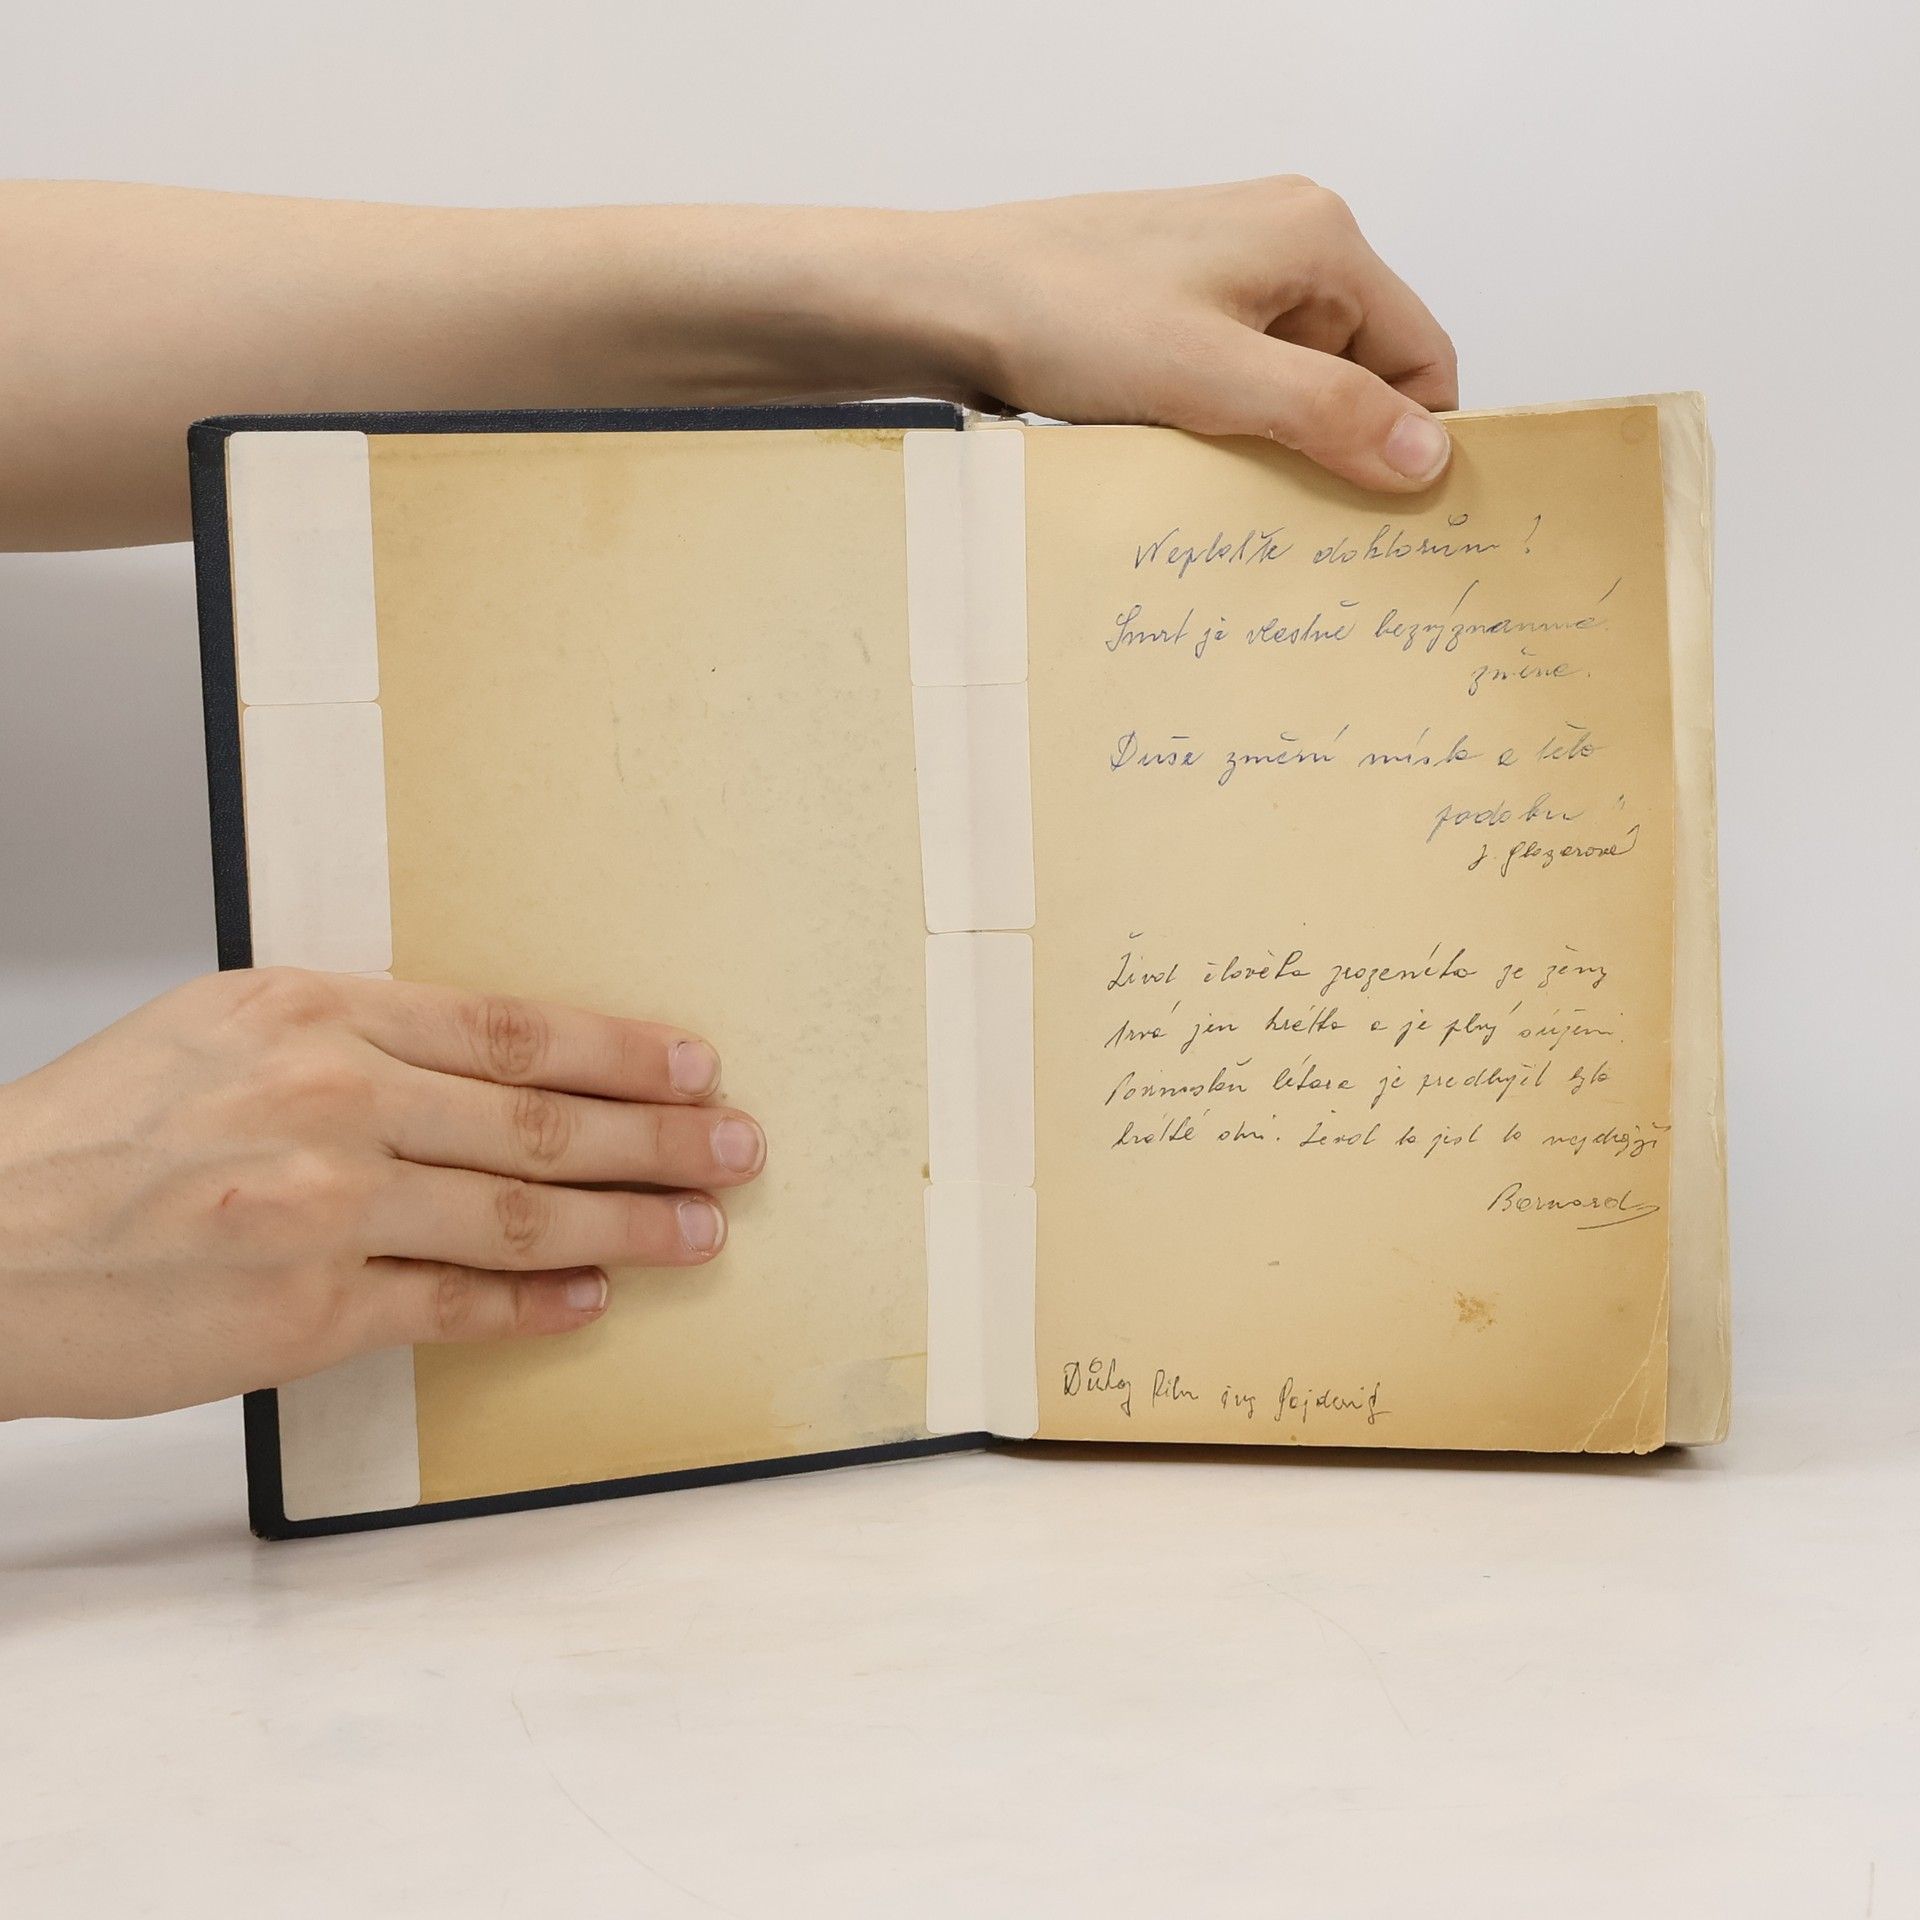 Neplaťte doktorům!
Smrt je vlastně bezvýznamná
změna.
Duše změní místo a tělo
podobu"
J. Glazarová
Život člověka zrozeného ze ženy
trvá jen krátko a je plný soužení.
lékaře je prodloužit tyto
krátké dni. Život to jest to nejdražší
Bernard